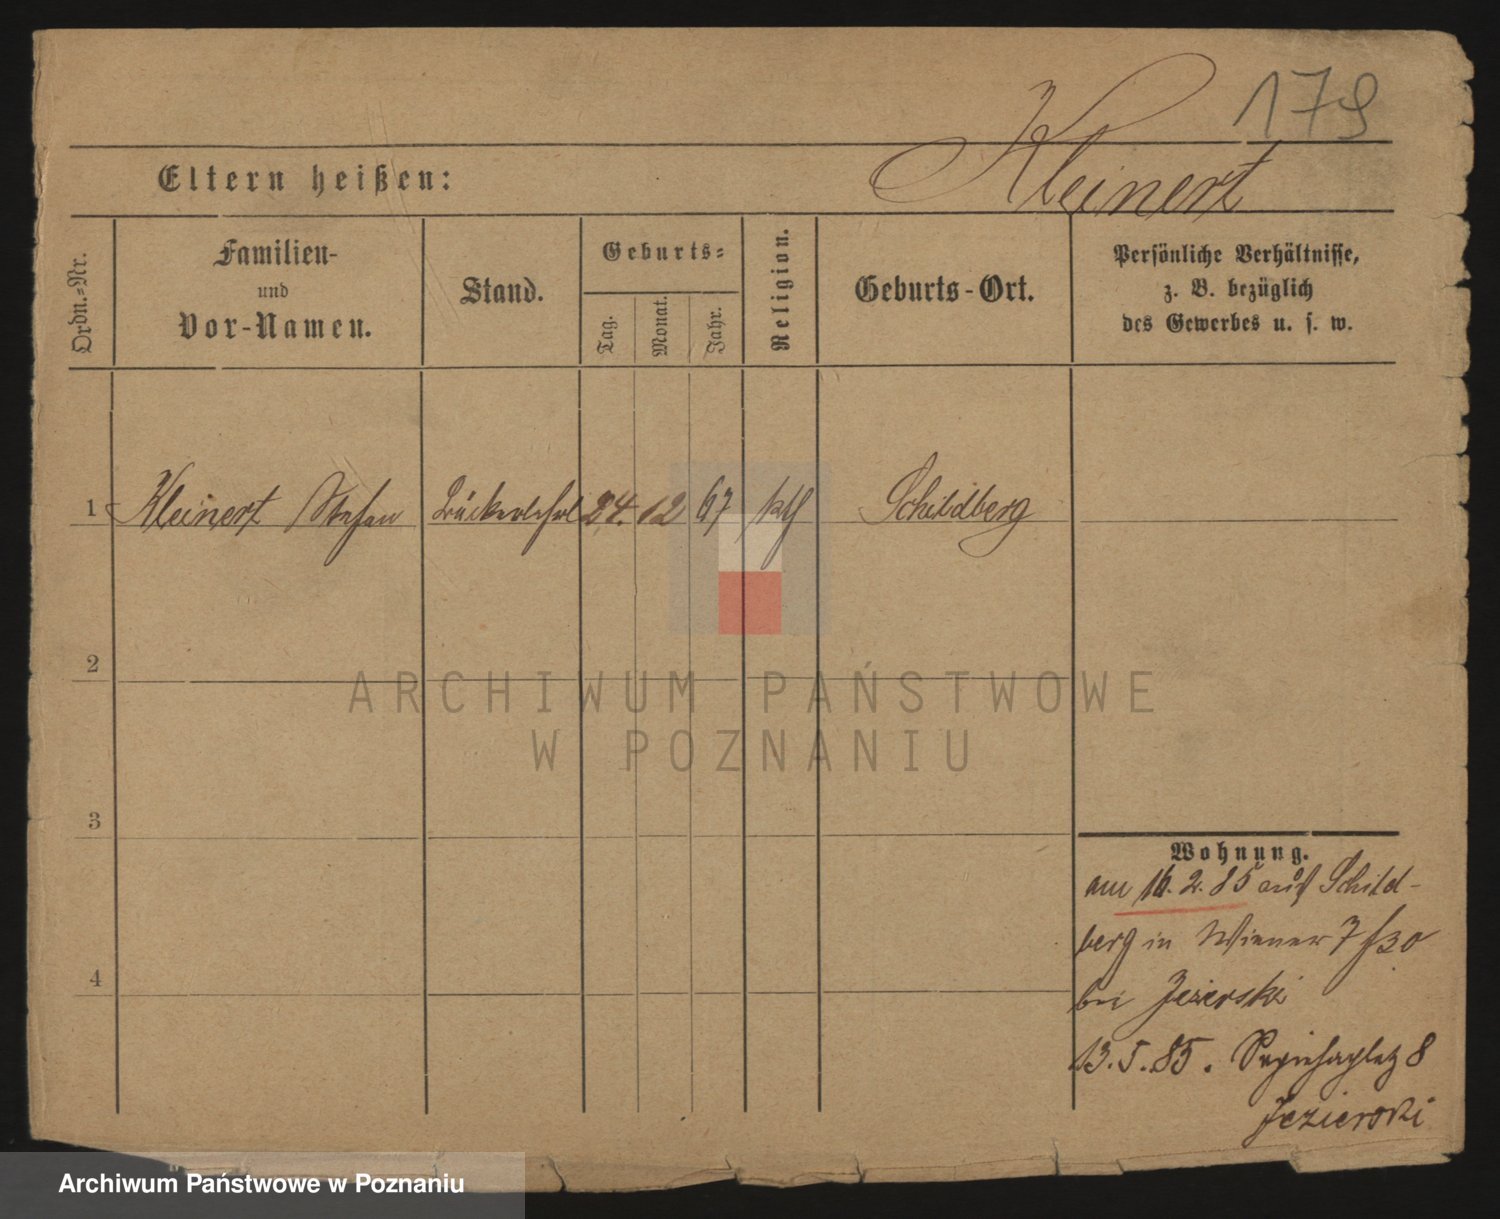 179
Kleinert
Eltern heißen:
Ordn.=Nr.
Familien-
und
Vor-Namen.
Stand.
Geburts=
Tag.
Monat.
Jahr.
Religion.
Geburts-Ort.
Persönliche Verhältnisse,
z. B. bezüglich
des Gewerbes u. s. w.
1 Kleinert Stefan 24. 12 67 kth Schildberg
2
3
4
Wohnung.
am 16. 2. 85 aus Schild-
berg in Wiener 7
bei Jezierski
13. 5. 85. Sapiehaplatz 8
Jezierski
ARCHIWUM PAŃSTWOWE
W POZNANIU
Archiwum Państwowe w Poznaniu